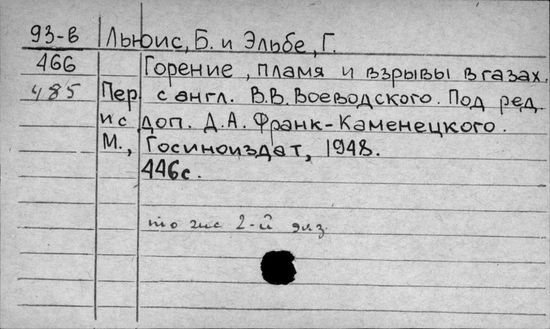 93-в Льюис, Б. и Эльбе, Г.
466 Горение, пламя и взрывы в газах.
485 Пер. с англ. В.В. Воеводского. Под ред.
и с доп. Д.А. Франк-Каменецкого.
М., Госиноиздат, 1948.
446с.
то же 2-й экз.